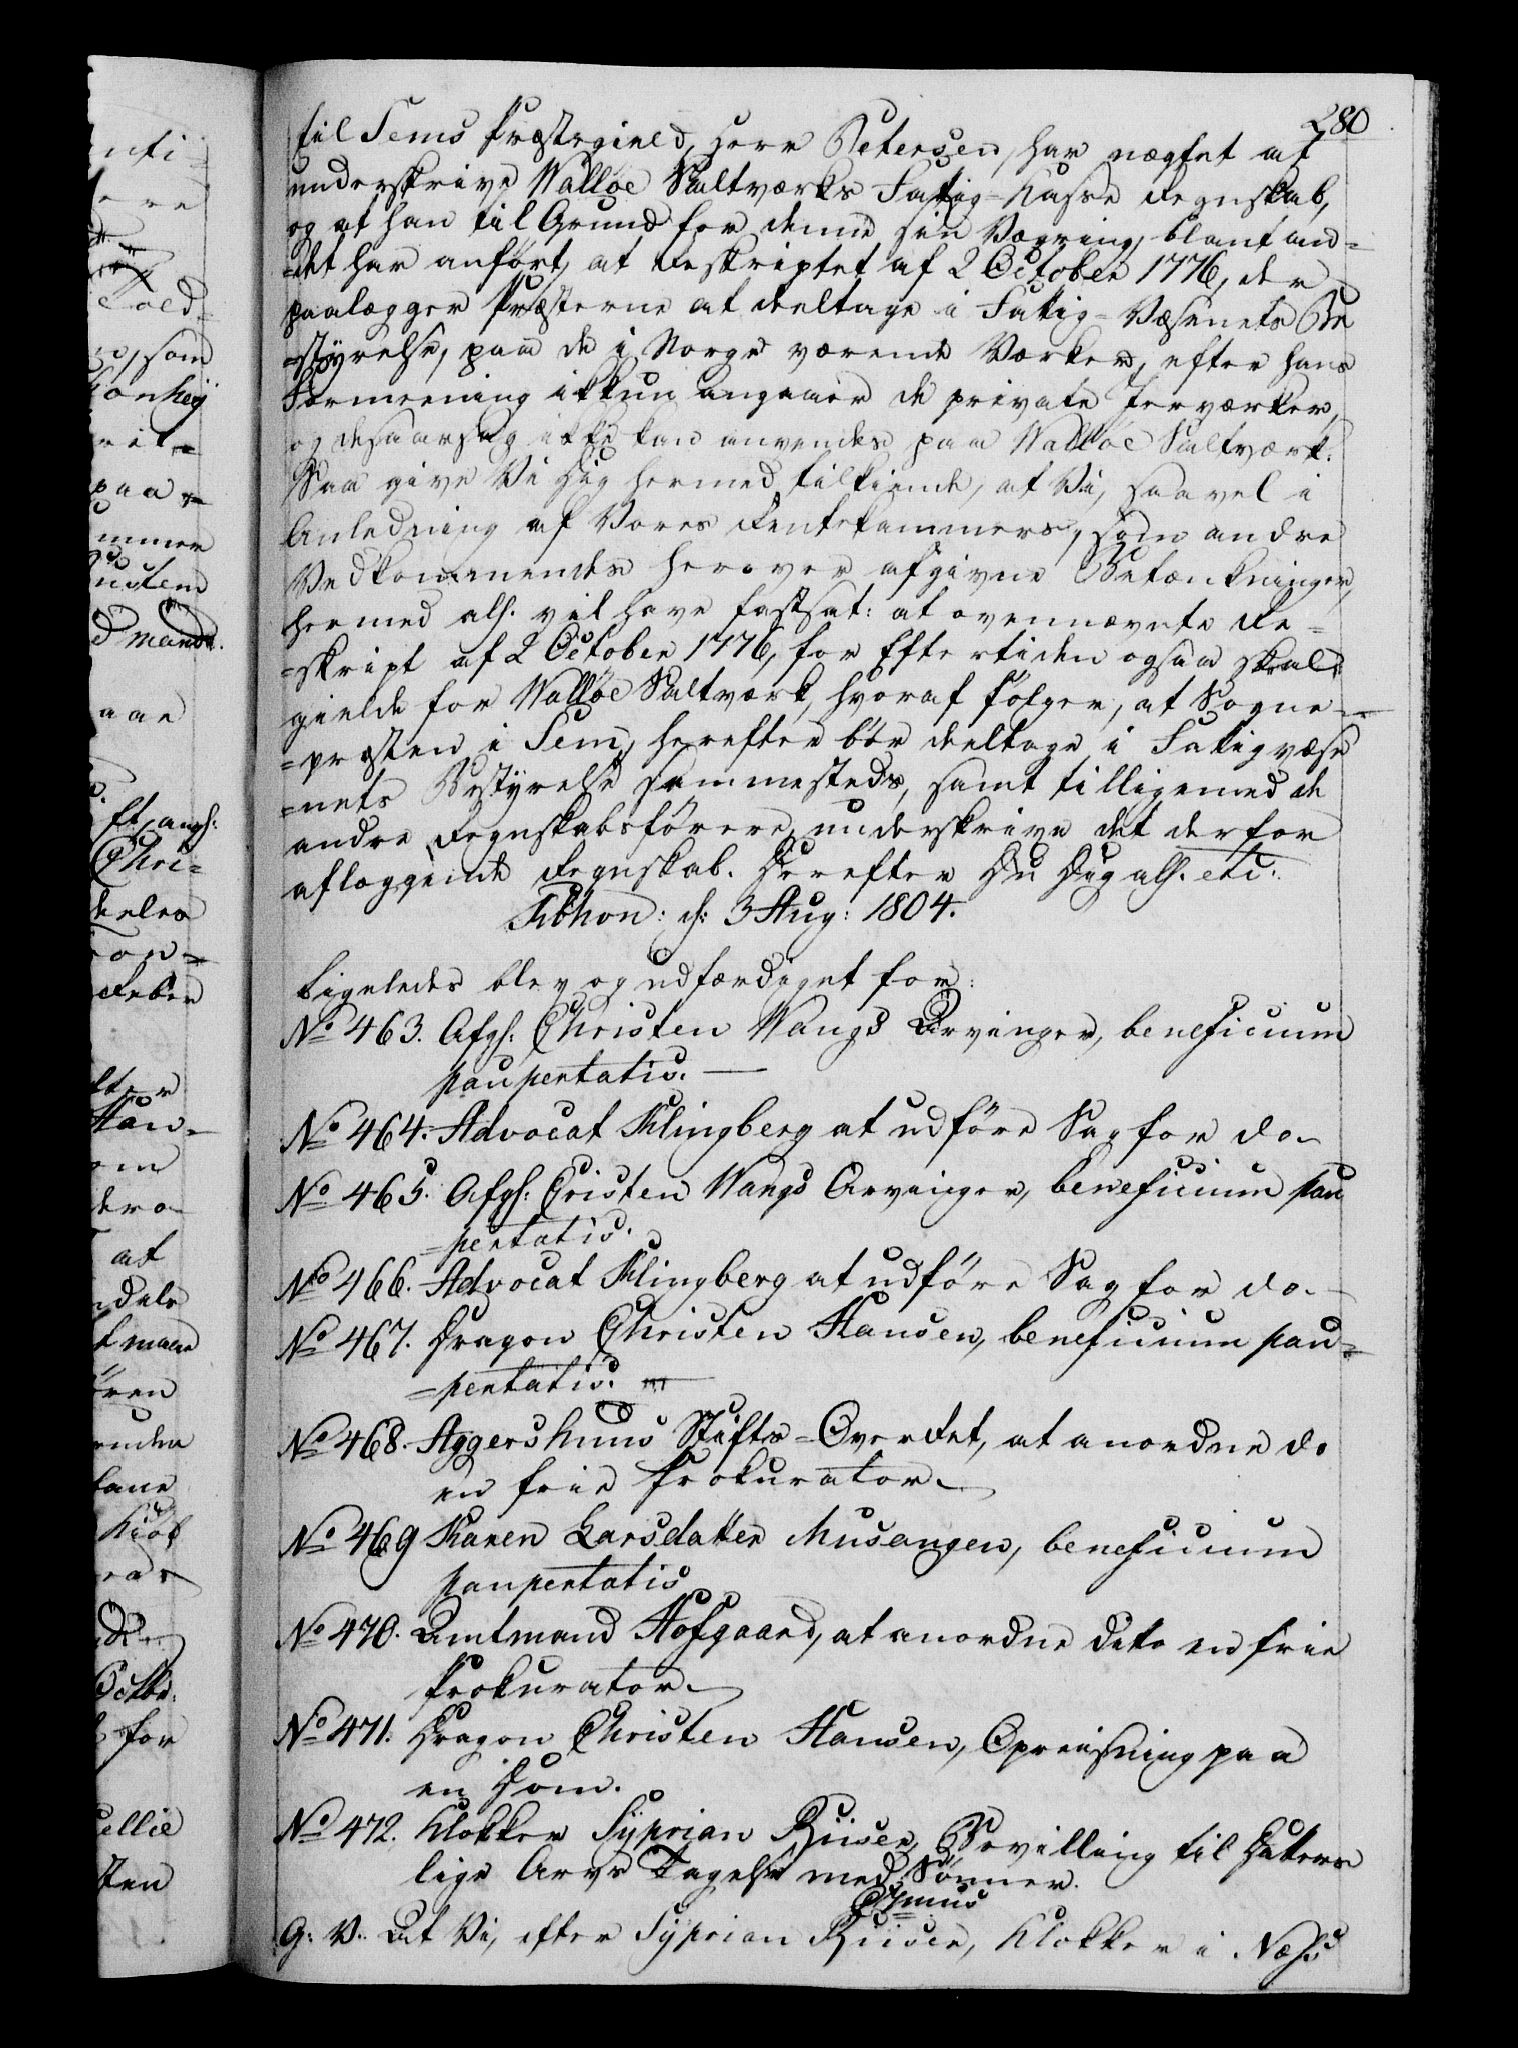 280
til Sems Præstegield, Herr Petersen, har nægtet at
underskrive Walløe Saltværks Fattig-Kasse Regnskab,
og at han til Grund for denne sin Vægring, blant and=
=et har anført, at Reskriptet af 2 October 1776, der
paalægger Præsterne at deeltage i Fattig-Væsenets Be
=styrelse, paa de i Norge værende Værker, efter hans
Formeening ikkun angaaer de private Jerværker,
og desaarsag ikke kan anvendes paa Walløe Saltværk.
Saa give Vi Dig hermed tilkiende, at Vi, saavel i
Anledning af Vores Rentekammers, som andre
Vedkommendes herover afgivne Betænkninger,
hermed allr. vil have fastsat: at ovennævnte Re=
=skript af 2 October 1776, for Eftertiden ogsaa skal
gielde for Walløe Saltværk, hvoraf følger, at Sogne=
=præsten i Sem, herefter bør deeltage i Fattigvæse
=nets Bestyrelse sammesteds, samt tilligemed de
andre Regnskabsførere, underskrive det derfor
aflæggende Regnskab. Herefter Du Dig allr. etc.
Kbhvn: d: 3 Aug: 1804.
Ligeledes blev og udfærdiget for:
No 463. Afgl: Christen Wangs Arvinger, beneficium
paupertatis.
No 464. Advocat Klingberg at udføre Sag for do.
No 465. Afgl: Cristen Wangs Arvinger, beneficium pau
=pertatis.
No 466. Advocat Klingberg at udføre Sag for do.
No 467. Dragon Christen Hansen, beneficium pau=
=pertatis.
No 468. Aggershuus Stifts-Overret, at anordne do
en frie Prokurator.
No 469 Karen Larsdatter Musangen, beneficium
paupertatis
No 470. Amtmand Hofgaard, at anordne dito en frie
Prokurator.
No 471. Dragon Christen Hansen, Opreisning paa
en Dom.
No 472. Klokker Syprian Riiser, Bevilling til Datter
lige Arve Tagelse med Sønner.
Rasmus
G: V: At Vi, efter Syprian Riiser, Klokker i Næss